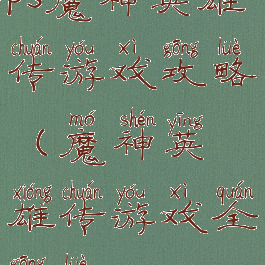 PS魔神英雄
chuán yóu xì gōng lüè
传游戏攻略
mó shén yīng
(魔神英
xióng chuán yóu xì quán
雄传游戏全
gōng lüè